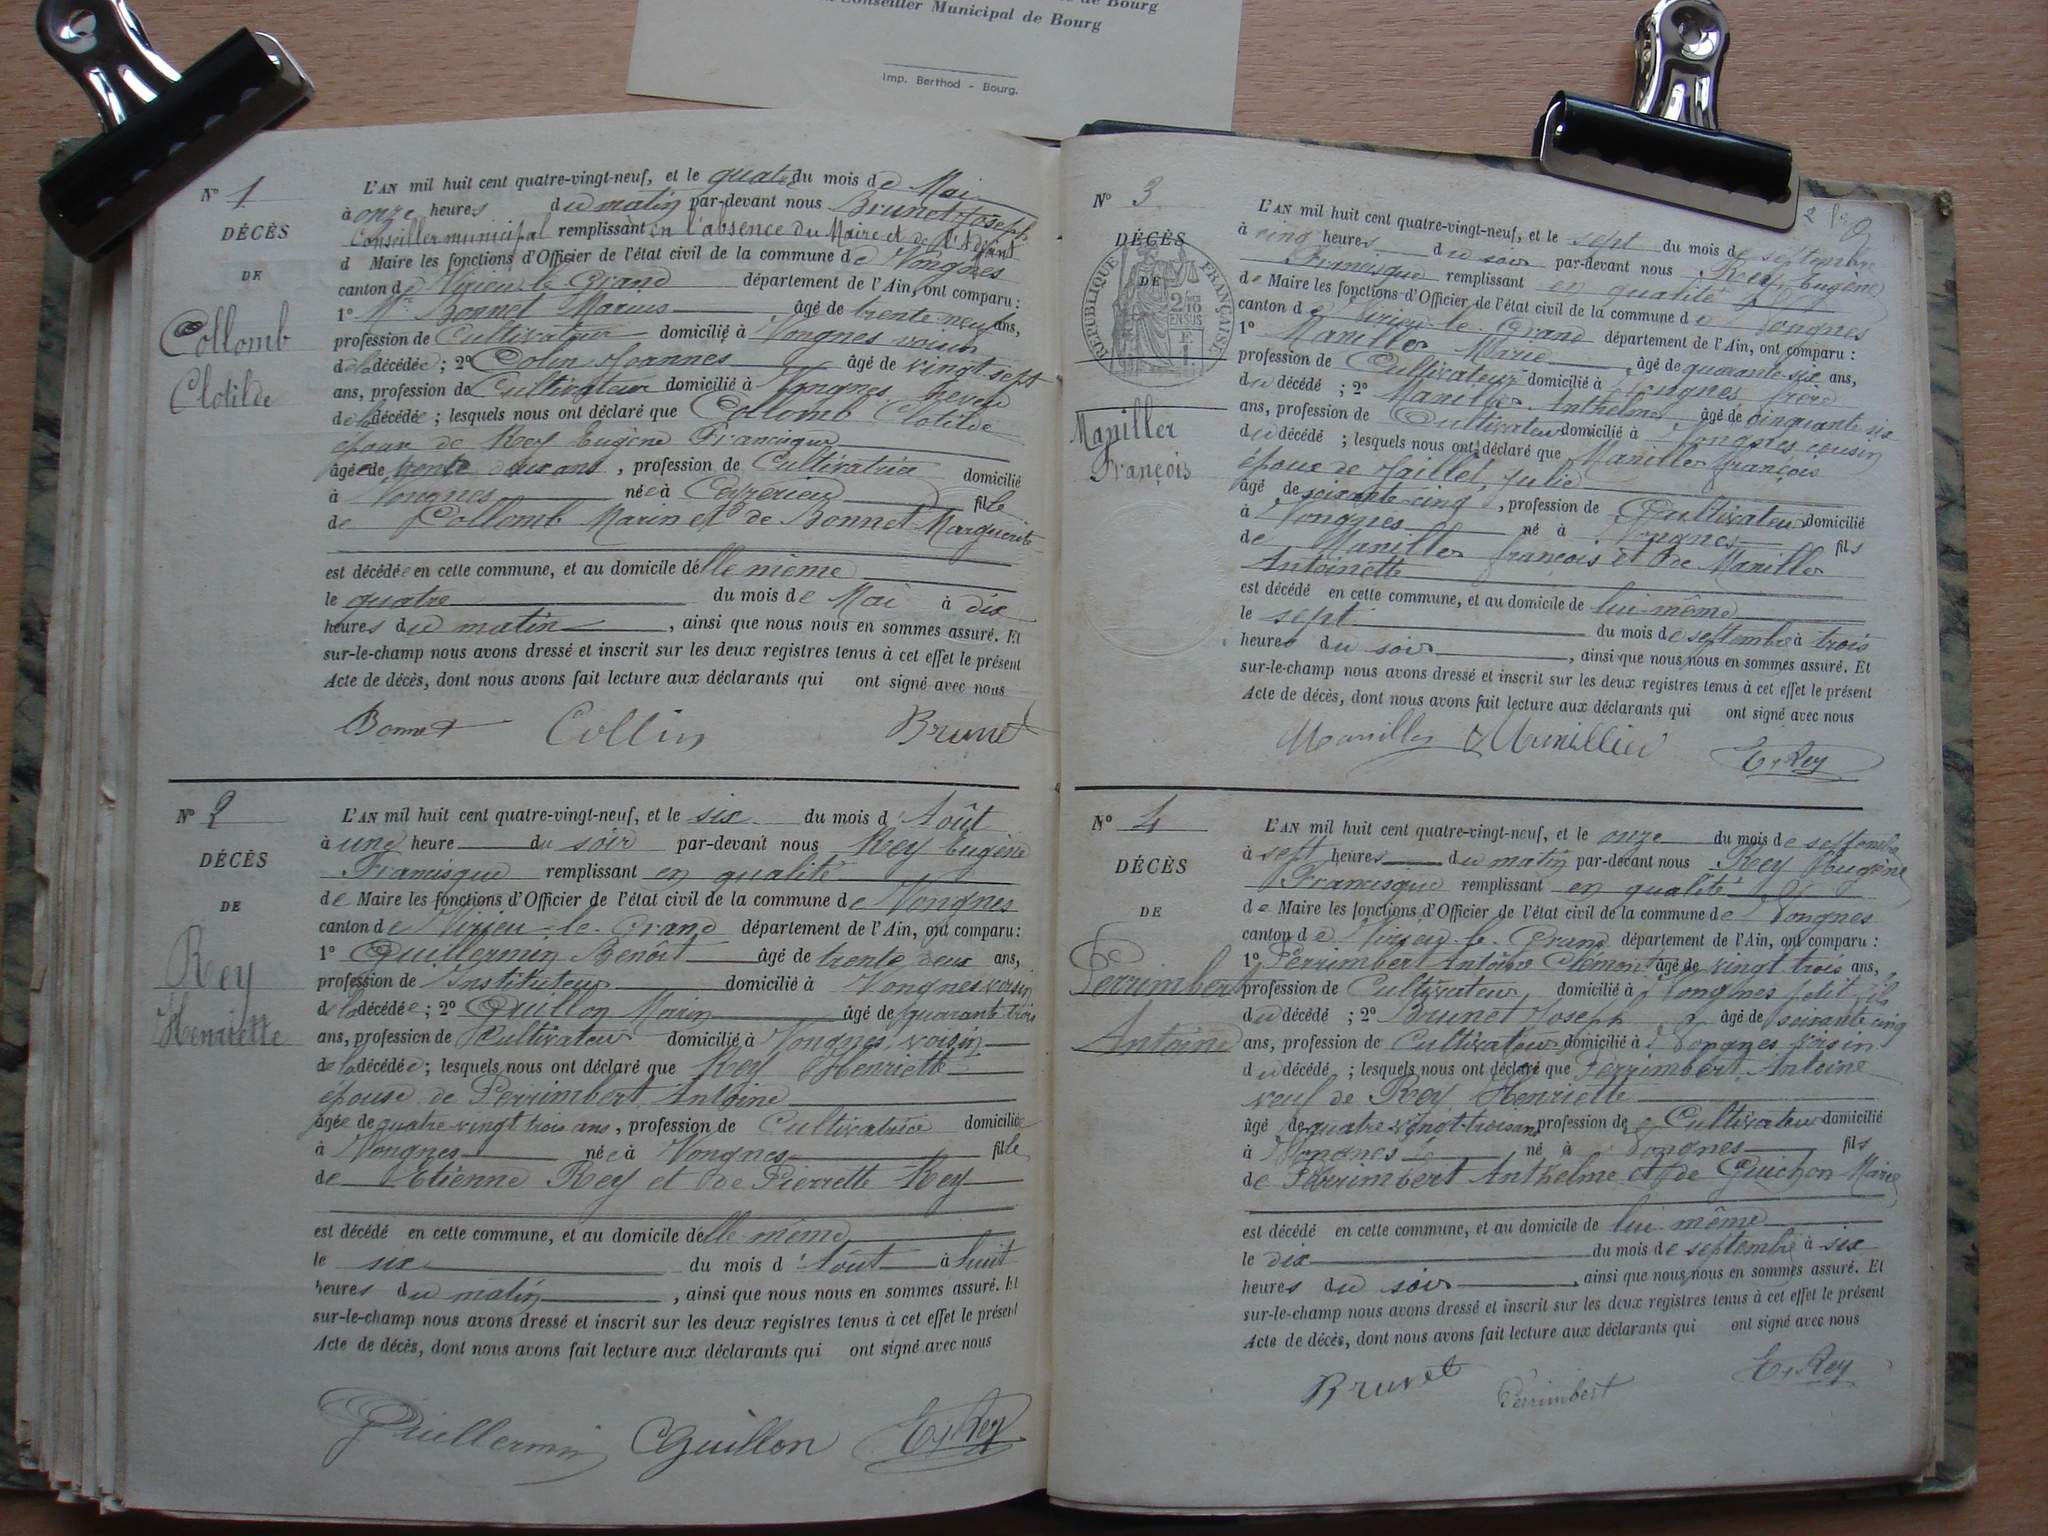 de Bourg
Conseiller Municipal de Bourg
Imp. Berthod - Bourg.
N° 1
DÉCÈS
DE
Collomb
Clotilde
L'AN mil huit cent quatre-vingt-neuf, et le quatre du mois de Mai
à onze heures du matin par-devant nous Brunet Joseph
Conseiller municipal remplissant en l'absence du Maire et de l'Adjoint
d Maire les fonctions d'Officier de l'état civil de la commune de Vongnes
canton de Virieu le Grand département de l'Ain, ont comparu :
1° Mr Bonnet Marius âgé de trente neuf ans,
profession de Cultivateur domicilié à Vongnes voisin
de la décédée ; 2° Colin Joannes âgé de vingt-sept
ans, profession de Cultivateur domicilié à Vongnes neveu
de la décédée ; lesquels nous ont déclaré que Collomb Clotilde
épouse de Rey Eugène Francisque
âgée de trente deux ans, profession de Cultivatrice domicilié
à Vongnes née à Ceyzerieu fille
de Collomb Marin et de Bonnet Marguerite
est décédée en cette commune, et au domicile d'elle même
le quatre du mois de Mai à dix
heures du matin, ainsi que nous nous en sommes assuré. Et
sur-le-champ nous avons dressé et inscrit sur les deux registres tenus à cet effet le présent
Acte de décès, dont nous avons fait lecture aux déclarants qui ont signé avec nous
Bonnet Collin Brunet
N° 2
DÉCÈS
DE
Rey
Henriette
L'AN mil huit cent quatre-vingt-neuf, et le six du mois d'Août
à une heure du soir par-devant nous Rey Eugène
Francisque remplissant en qualité
de Maire les fonctions d'Officier de l'état civil de la commune de Vongnes
canton de Virieu-le-Grand département de l'Ain, ont comparu :
1° Guillermin Benoît âgé de trente deux ans,
profession de Instituteur domicilié à Vongnes voisin
de la décédée ; 2° Guillon Marin âgé de quarante trois
ans, profession de Cultivateur domicilié à Vongnes voisin
de la décédée ; lesquels nous ont déclaré que Rey Henriette
épouse de Perrimbert Antoine
âgée de quatre-vingt trois ans, profession de Cultivatrice domiciliée
à Vongnes née à Vongnes fille
de Etienne Rey et de Pierrette Rey
est décédé en cette commune, et au domicile d'elle-même
le six du mois d'Août à huit
heures du matin, ainsi que nous nous en sommes assuré. Et
sur-le-champ nous avons dressé et inscrit sur les deux registres tenus à cet effet le présent
Acte de décès, dont nous avons fait lecture aux déclarants qui ont signé avec nous
Guillermin Guillon E. Rey
N° 3
DÉCÈS
DE
RÉPUBLIQUE FRANÇAISE
Maniller
François
L'AN mil huit cent quatre-vingt-neuf, et le sept du mois de septembre
à cinq heures du soir par-devant nous Rey Eugène
Francisque remplissant en qualité
de Maire les fonctions d'Officier de l'état civil de la commune de Vongnes
canton de Virieu-le-Grand département de l'Ain, ont comparu :
1° Maniller Marie, âgé de quarante-six ans,
profession de Cultivateur domicilié à Vongnes frère
du décédé ; 2° Maniller Anthelme, âgé de cinquante six
ans, profession de Cultivateur domicilié à Vongnes cousin
du décédé ; lesquels nous ont déclaré que Maniller François
époux de Jaillet Julie
âgé de soixante-cinq, profession de Cultivateur domicilié
à Vongnes né à Vongnes fils
de Maniller François et de Maniller
Antoinette
est décédé en cette commune, et au domicile de lui-même
le sept du mois de septembre à trois
heures du soir, ainsi que nous nous en sommes assuré. Et
sur-le-champ nous avons dressé et inscrit sur les deux registres tenus à cet effet le présent
Acte de décès, dont nous avons fait lecture aux déclarants qui ont signé avec nous
Maniller Manillier E. Rey
N° 4
DÉCÈS
DE
Perrimbert
Antoine
L'AN mil huit cent quatre-vingt-neuf, et le onze du mois de septembre
à sept heures du matin par-devant nous Rey Eugène
Francisque remplissant en qualité
de Maire les fonctions d'Officier de l'état civil de la commune de Vongnes
canton de Virieu-le-Grand département de l'Ain, ont comparu :
1° Perrimbert Antoine Clémont âgé de vingt trois ans,
profession de Cultivateur domicilié à Vongnes petit fils
du décédé ; 2° Brunet Joseph âgé de soixante cinq
ans, profession de Cultivateur domicilié à Vongnes voisin
du décédé ; lesquels nous ont déclaré que Perrimbert Antoine
veuf de Rey Henriette
âgé de quatre-vingt-trois ans profession de Cultivateur domicilié
à Vongnes né à Vongnes fils
de Perrimbert Anthelme et de Guichon Marie
est décédé en cette commune, et au domicile de lui-même
le dix du mois de septembre à six
heures du soir, ainsi que nous nous en sommes assuré. Et
sur-le-champ nous avons dressé et inscrit sur les deux registres tenus à cet effet le présent
Acte de décès, dont nous avons fait lecture aux déclarants qui ont signé avec nous
Brunet Perrimbert E. Rey